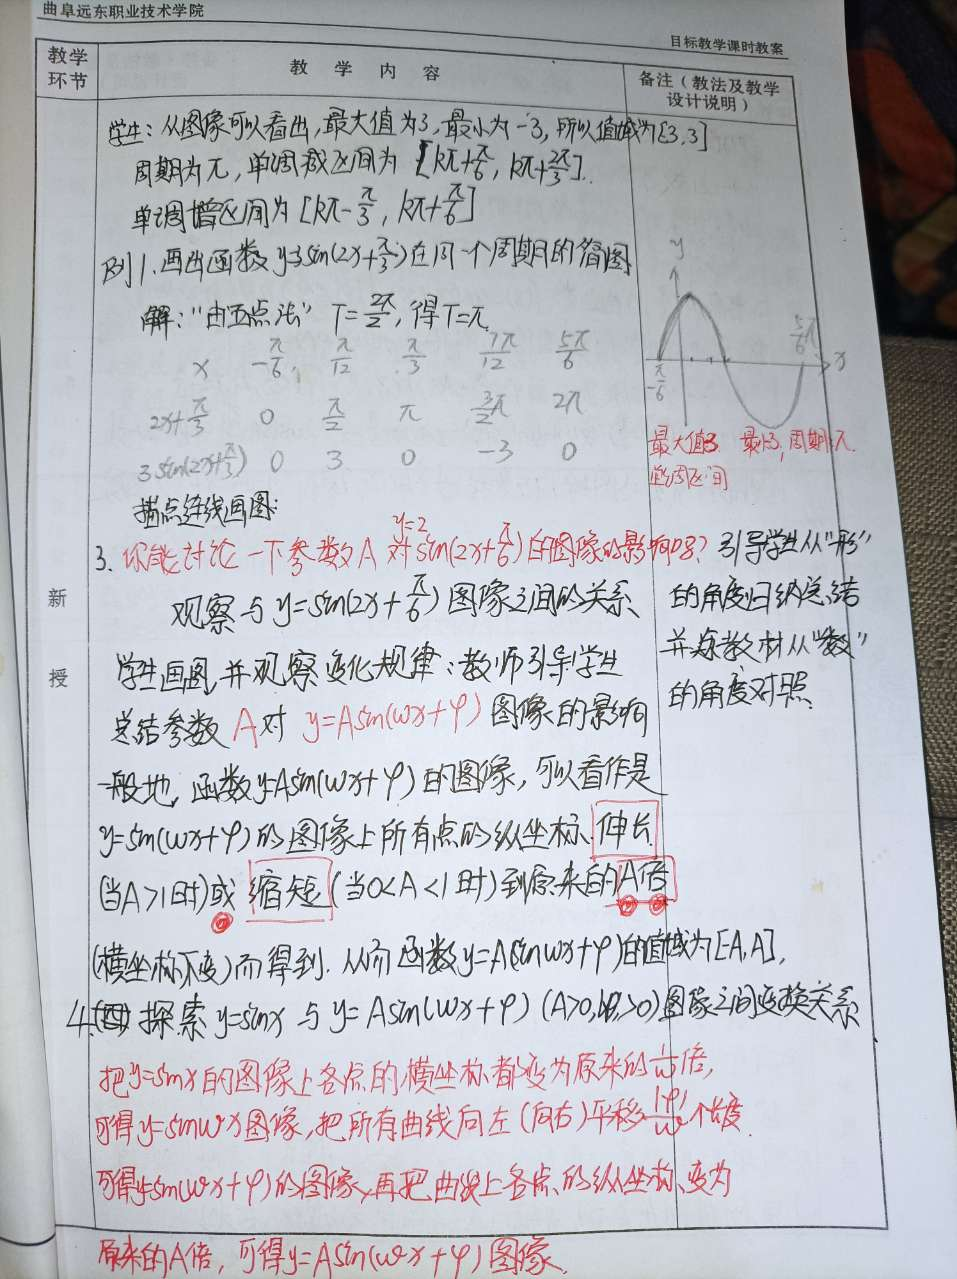 曲阜远东职业技术学院
目标教学课时教案
教学环节
教 学 内 容
备注（教法及教学设计说明）
学生：从图像可以看出，最大值为3，最小为-3，所以值域为[3,3]
周期为π，单调减区间为 [kπ+π/6, kπ+2π/3].
单调增区间为[kπ-π/3, kπ+π/6]
例1.画出函数y=3sin(2x+π/3)在同一个周期内的简图
解："由五点法" T=2π/2，得T=π
x -π/6 π/12 π/3 7π/12 5π/6
2x+π/3 0 π/2 π 3/2π 2π
3sin(2x+π/3) 0 3 0 -3 0
描点连线画图:
y
-π/6
5/6π
x
最大值3 最小3，周期π.
单调区间
y=2
3. 你能讨论一下参数A对sin(2x+π/6)的图像的影响吗？
观察与y=sin(2x+π/6)图像之间的关系
引导学生从"形"
的角度归纳总结
教材从"数"
的角度对照.
新
授
学生画图并观察变化规律：教师引导学生
总结参数A对 y=Asin(ωx+φ)图像的影响
一般地，函数y=Asin(ωx+φ)的图像，可以看作是
y=sin(ωx+φ)的图像上所有点的纵坐标伸长
(当A>1时)或缩短(当0<A<1时)到原来的A倍
(横坐标不变)而得到. 从而函数y=A(sinωx+φ)的值域为[-A,A],
4.(四)探索y=sinx与y=Asin(ωx+φ) (A>0, >0)图像之间变换关系
把y=sinx的图像上各点的横坐标都变为原来的1/ω倍,
可得y=sinωx图像,把所有曲线向左(向右)平移|φ|/ω个长度
可得y=sin(ωx+φ)的图像,再把曲线上各点的纵坐标变为
原来的A倍，可得y=Asin(ωx+φ)图像.